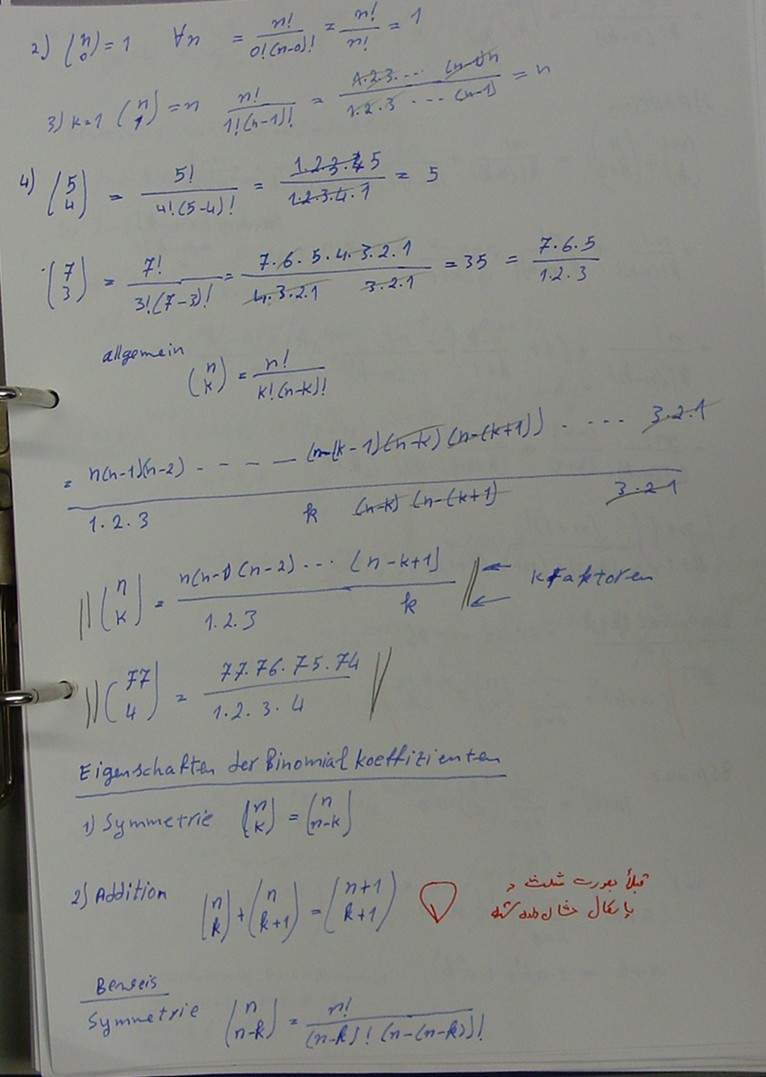 2) (n 0) = 1 ∀n = n!/0!(n-0)! = n!/n! = 1
3) k=1 (n 1) = n n!/1!(n-1)! = 1·2·3···· (n-1)n / 1·2·3 ··· (n-1) = n
4) (5 4) = 5!/4!(5-4)! = 1·2·3·4·5 / 1·2·3·4·1 = 5
(7 3) = 7!/3!(7-3)! = 7·6·5·4·3·2·1 / 4·3·2·1 3·2·1 = 35 = 7·6·5 / 1·2·3
allgemein
(n k) = n!/k!(n-k)!
= n(n-1)(n-2) - - - - (n-(k-1)(n-k)(n-(k+1)) · ··· 3·2·1
1·2·3 k (n-k) (n-(k+1) 3·2·1
(n k) = n(n-1)(n-2)··· (n-k+1) / 1·2·3 k k Faktoren
(77 4) = 77·76·75·74 / 1·2·3·4
Eigenschaften der Binomialkoeffizienten
1) Symmetrie (n k) = (n n-k)
2) Addition (n k) + (n k+1) = (n+1 k+1)
قبلاً بصورت مثلث
پاسکال نشان داده شد
Beweis
Symmetrie (n n-k) = n!/(n-k)!(n-(n-k))!